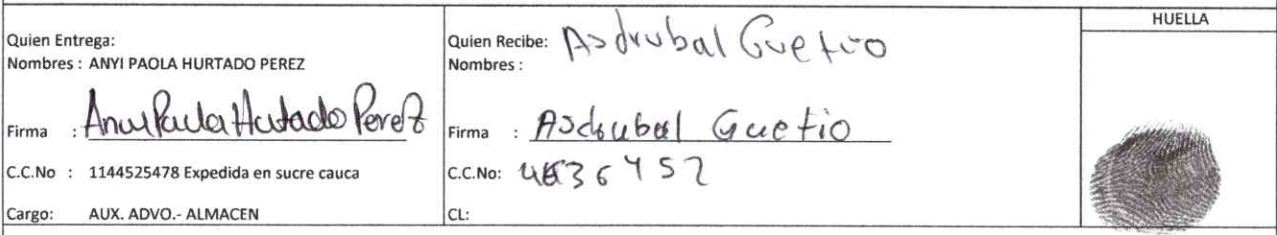 Quien Entrega:
Nombres : ANYI PAOLA HURTADO PEREZ
Firma : Anyi Paola Hurtado Perez
C.C.No : 1144525478 Expedida en sucre cauca
Cargo: AUX. ADVO.- ALMACEN
Quien Recibe: Asdrubal Guetio
Nombres :
Firma : Asdrubal Guetio
C.C.No:
CL:
HUELLA